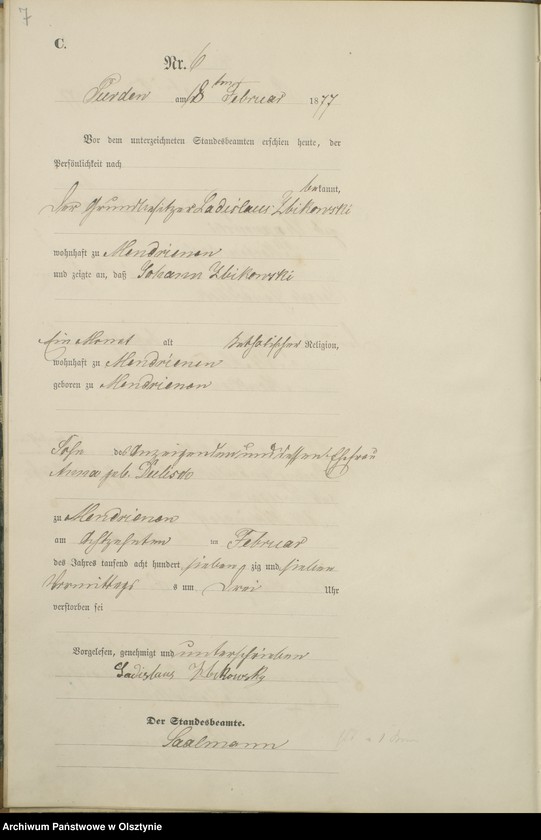 7
C.
Nr. 6
Purden am 18 ten Februar 1877
Vor dem unterzeichneten Standesbeamten erschien heute, der
Persönlichkeit nach
bekannt,
Der Grundbesitzer Ladislaus Zbikowski
wohnhaft zu Mendrienen
und zeigte an, daß Johann Zbikowski
Ein Monat alt katholischer Religion,
wohnhaft zu Mendrienen
geboren zu Mendrienen
Sohn des Anzeigenden und dessen Ehefrau
Anna geb.
zu Mendrienen
am Achtzehnten im Februar
des Jahres tausend acht hundert sieben zig und sieben
Vormittags s um Drei Uhr
verstorben sei
Vorgelesen, genehmigt und unterschrieben
Ladislaus Zbikowsky
Der Standesbeamte.
Saalmann
Archiwum Państwowe w Olsztynie